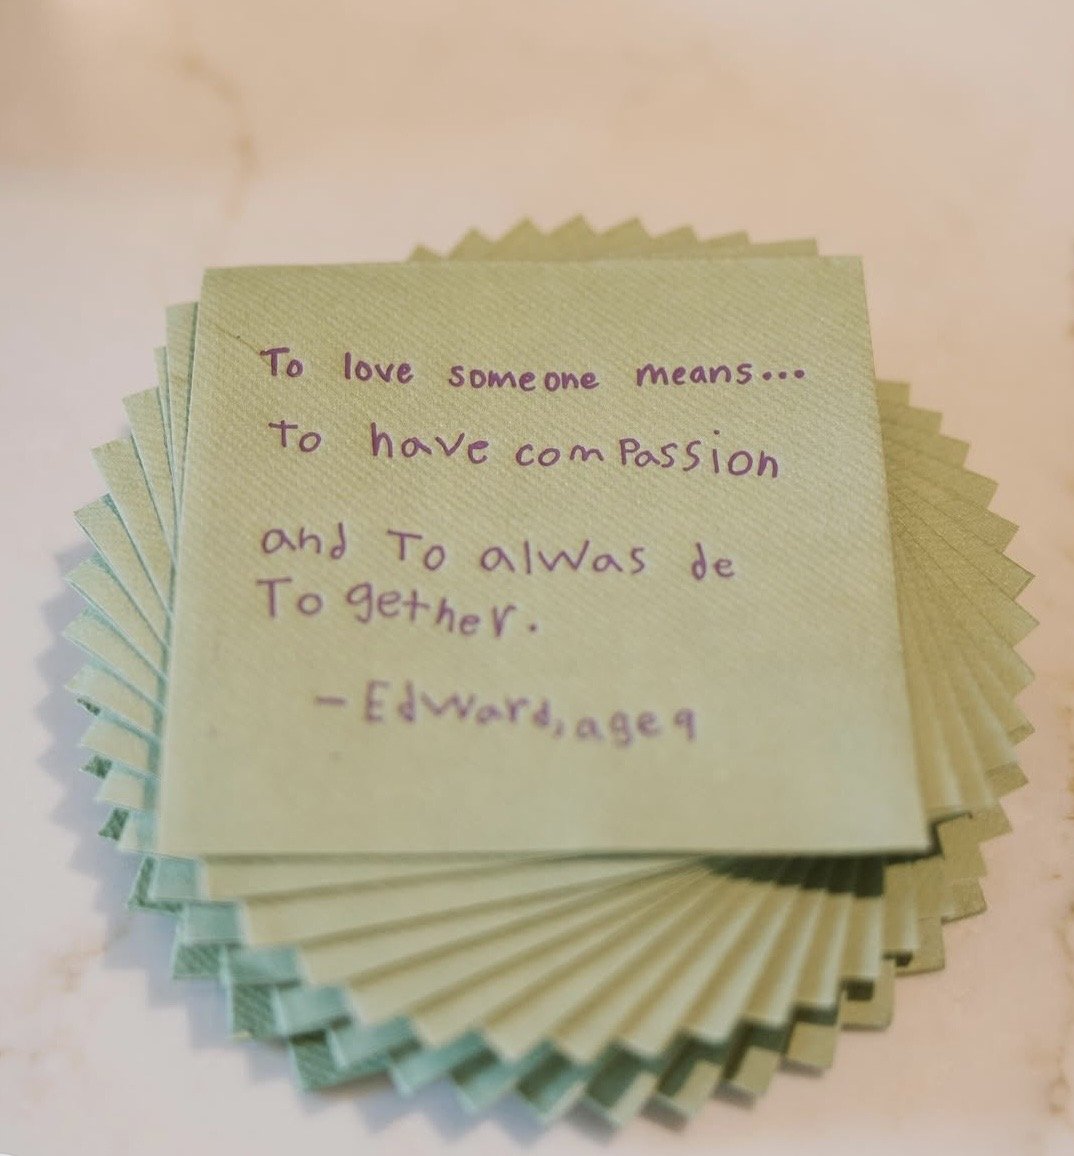 To love someone means...
To have comPassion
and To alWas de
To gether.
- Edward, age 9